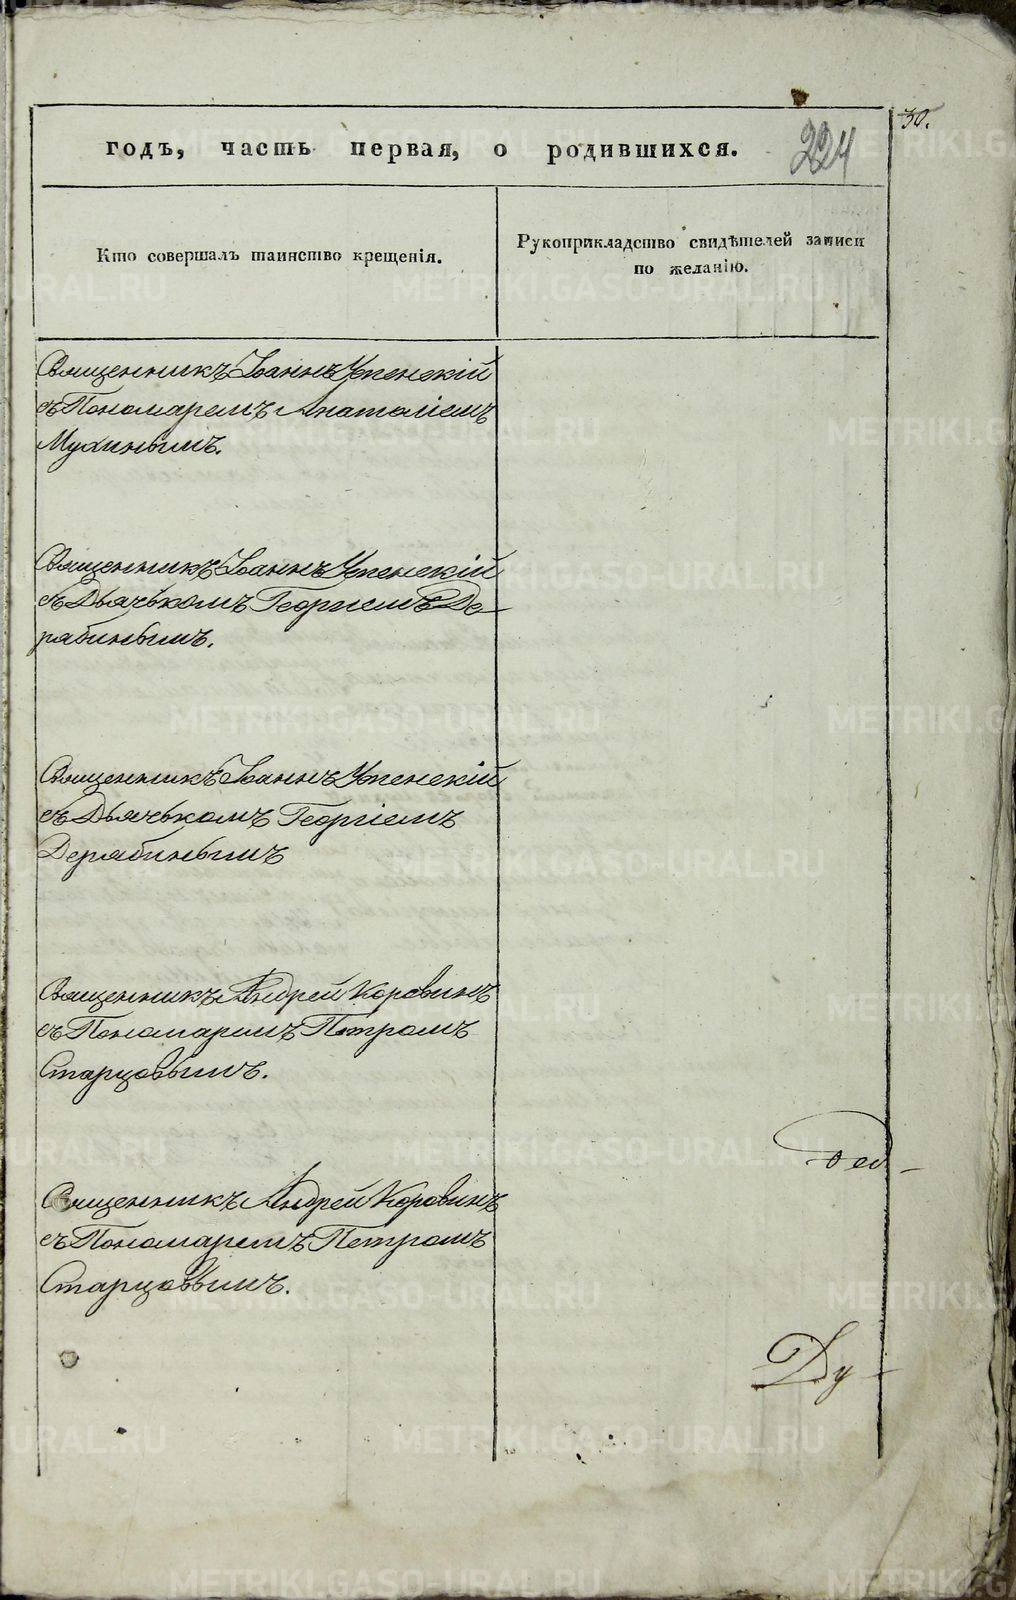 30.
годъ, часть первая, о родившихся.
224
Кто совершалъ таинство крещенія.
Рукоприкладство свидѣтелей записи
по желанію.
Священникъ Іоаннъ Успенскій
съ Пономаремъ Анатоліемъ
Мухинымъ.
Священникъ Іоаннъ Успенскій
съ Дьячькомъ Георгіемъ Де-
рябинымъ.
Священникъ Іоаннъ Успенскій
съ Дьячькомъ Георгіемъ
Дерябинымъ
Священникъ Андрей Коровинъ
съ Пономаремъ Петромъ
Старцовымъ.
Священникъ Андрей Коровинъ
съ Пономаремъ Петромъ
Старцовымъ.
Ду-
METRIKI.GASO-URAL.RU